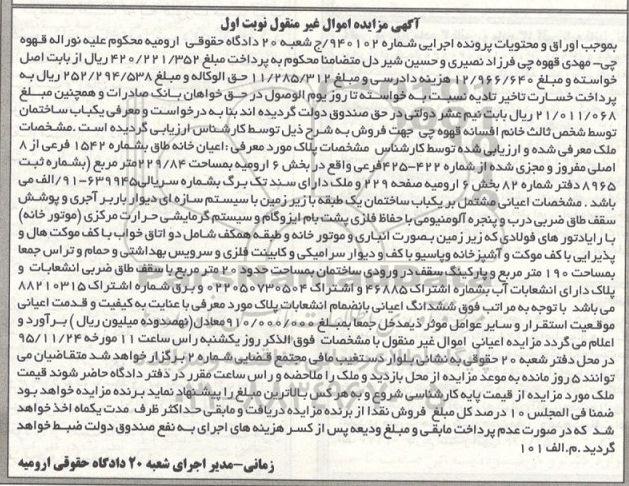 آگهی مزایده اموال غیر منقول نوبت اول
بموجب اوراق و محتویات پرونده اجرایی شماره ۹۴۰۱۰۲/ج شعبه ۲۰ دادگاه حقوقی ارومیه محکوم علیه نوراله قهوه
چی- مهدی قهوه چی فرزاد نصیری و حسین شیر دل متضامنا محکوم به پرداخت مبلغ ۴۲۰/۲۲۱/۳۵۲ ریال از بابت اصل
خواسته و مبلغ ۱۲/۹۶۶/۶۴۰ هزینه دادرسی و مبلغ ۱۱/۲۸۵/۳۱۲ حق الوکاله و مبلغ ۲۵۲/۲۹۴/۵۳۸ ریال به
پرداخت خسارت تاخیر تادیه نسبت به خواسته تا روز یوم الوصول در حق خواهان بانک صادرات و همچنین مبلغ
۲۱/۰۱۱/۰۶۸ ریال بابت نیم عشر دولتی در حق صندوق دولت گردیده اند بنا به درخواست و معرفی یکباب ساختمان
توسط شخص ثالث خانم افسانه قهوه چی جهت فروش به شرح ذیل توسط کارشناس ارزیابی گردیده است .مشخصات
ملک معرفی شده و ارزیابی شده توسط کارشناس مشخصات پلاک مورد معرفی :اعیان خانه طاق بشماره ۱۵۴۲ فرعی از ۸
اصلی مفروز و مجزی شده از شماره ۴۲۲-۴۲۵فرعی واقع در بخش ۶ ارومیه بمساحت ۲۲۹/۸۴متر مربع (بشماره ثبت
۸۹۶۵ دفتر شماره ۸۲ بخش ۶ ارومیه صفحه ۲۲۹ و ملک دارای سند تک برگ بشماره سریالی۶۳۹۹۴۵-۹۱/الف می
باشد . مشخصات اعیانی مشتمل بر یکباب ساختمان یک طبقه با زیر زمین با سیستم سازه ای دیوار باربر آجری و پوشش
سقف طاق ضربی درب و پنجره آلومنیومی با حفاظ فلزی پشت بام ایزوگام و سیستم گرمایشی حرارت مرکزی (موتور خانه)
با رایادتور های فولادی که زیر زمین بصورت انباری و موتور خانه و طبقه همکف شامل دو اتاق خواب با کف موکت هال و
پذیرایی با کف موکت و آشپزخانه وپاسیو با کف و دیوار سرامیکی و کابینت فلزی و سرویس بهداشتی و حمام و تراس جمعا
بمساحت ۱۹۰ متر مربع و پارکینگ سقف در ورودی ساختمان بمساحت حدود ۲۰ متر مربع با سقف طاق ضربی انشعابات و
پلاک دارای انشعابات آب بشماره اشتراک۴۶۸۸۵ و اشتراک ۰۲۲۰۵۰۷۳۰۵۰۴ و برق شماره اشتراک ۸۸۲۱۰۳۱۵
می باشد با توجه به مراتب فوق ششدانگ اعیانی بانضمام انشعابات پلاک مورد معرفی با عنایت به کیفیت و قدمت اعیانی
موقعیت استقرار و سایر عوامل موثر ذیمدخل جمعا بمبلغ ۹۱۰/۰۰۰/۰۰۰معادل(نهصدوده میلیون ریال ) برآورد و
اعلام می گردد مزایده اعیانی اموال غیر منقول با مشخصات فوق الذکر روز یکشنبه راس ساعت ۱۱ مورخه ۹۵/۱۱/۲۴
در محل دفتر شعبه ۲۰ حقوقی به نشانی بلوار دستغیب مافی مجتمع قضایی شماره ۲ برگزار خواهد شد متقاضیان می
توانند ۵ روز مانده به موعد مزایده از محل بازدید و ملک را ملاحضه و راس ساعت مقرر در دفتر دادگاه حاضر شوند قیمت
ملک مورد مزایده از قیمت پایه کارشناسی شروع و به هر کس بالاترین مبلغ را پیشنهاد نماید برنده مزایده خواهد بود
ضمنا فی المجلس ۱۰ درصد کل مبلغ فروش نقدا از برنده مزایده دریافت و مابقی حداکثر ظرف مدت یکماه اخذ خواهد
شد که در صورت عدم پرداخت مابقی و مبلغ ودیعه پس از کسر هزینه های اجرای به نفع صندوق دولت ضبط خواهد
گردید .م.الف ۱۰۱
زمانی-مدیر اجرای شعبه ۲۰ دادگاه حقوقی ارومیه